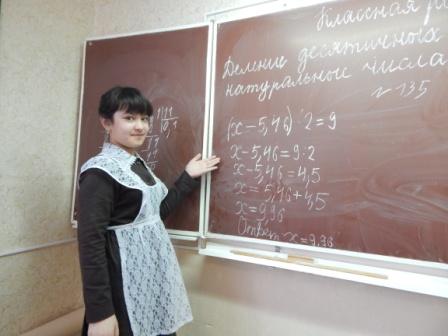 Классная ра
Деление десятичных
натуральные числа
№ 135
(x-5,46)·2=9
x-5,46=9:2
x-5,46=4,5
x=5,46+4,5
x=9,96
Ответ x=9,96